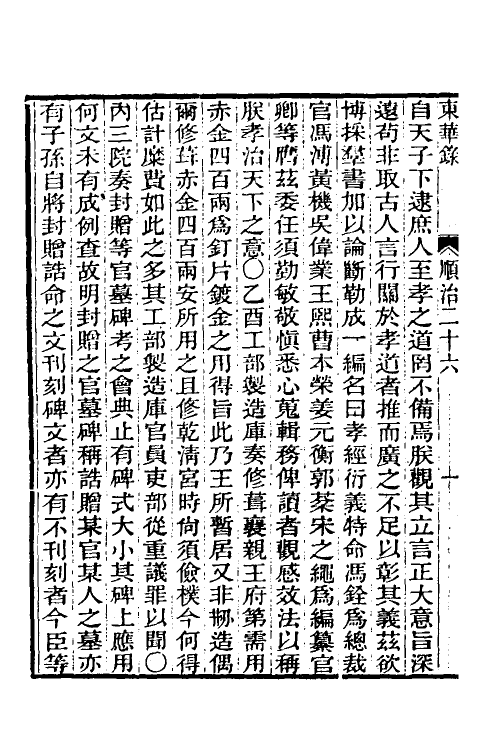 東華錄 順治二十六 十
自天子下逮庶人至孝之道罔不備焉朕觀其立言正大意旨深
遠苟非取古人言行關於孝道者推而廣之不足以彰其義茲欲
博採羣書加以論斷勒成一編名曰孝經衍義特命馮銓爲總裁
官馮溥黃機吳偉業王熙曹本榮姜元衡郭棻宋之繩爲編纂官
卿等膺茲委任須勤敏敬愼悉心蒐輯務俾讀者觀感效法以稱
朕孝治天下之意〇乙酉工部製造庫奏修葺襄親王府第需用
赤金四百兩爲釘片鍍金之用得旨此乃王所暫居又非刱造偶
爾修葺赤金四百兩安所用之且修乾淸宮時尙須儉樸今何得
估計糜費如此之多其工部製造庫官員吏部從重議罪以聞〇
內三院奏封贈等官墓碑考之會典止有碑式大小其碑上應用
何文未有成例查故明封贈之官墓碑稱誥贈某官某人之墓亦
有子孫自將封贈誥命之文刊刻碑文者亦有不刊刻者今臣等